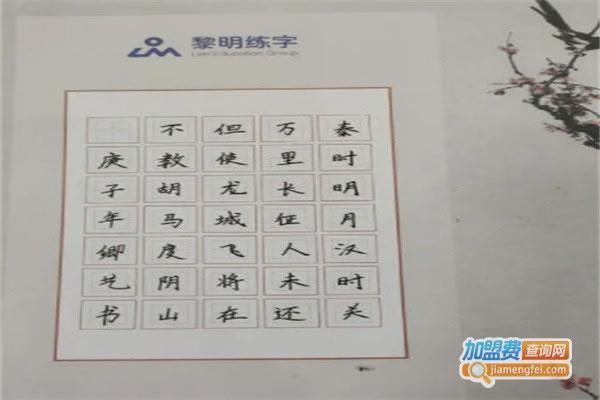 黎明练字
Lim Education Group
秦时明月汉时关
万里长征人未还
但使龙城飞将在
不教胡马度阴山
庚子年卿书
加盟费查询网
jiamengfei.com